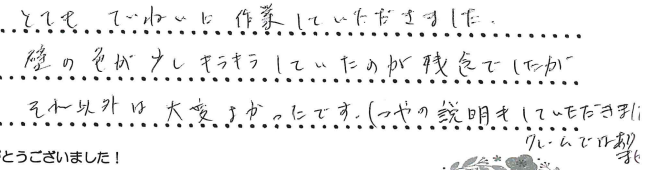 とても ていねいに 作業していただきました.
壁の色が少しキラキラしていたのが残念でしたが
それ以外は大変よかったです.(つやの説明もしていただきまし
クレームではあり
ませ
がとうございました！